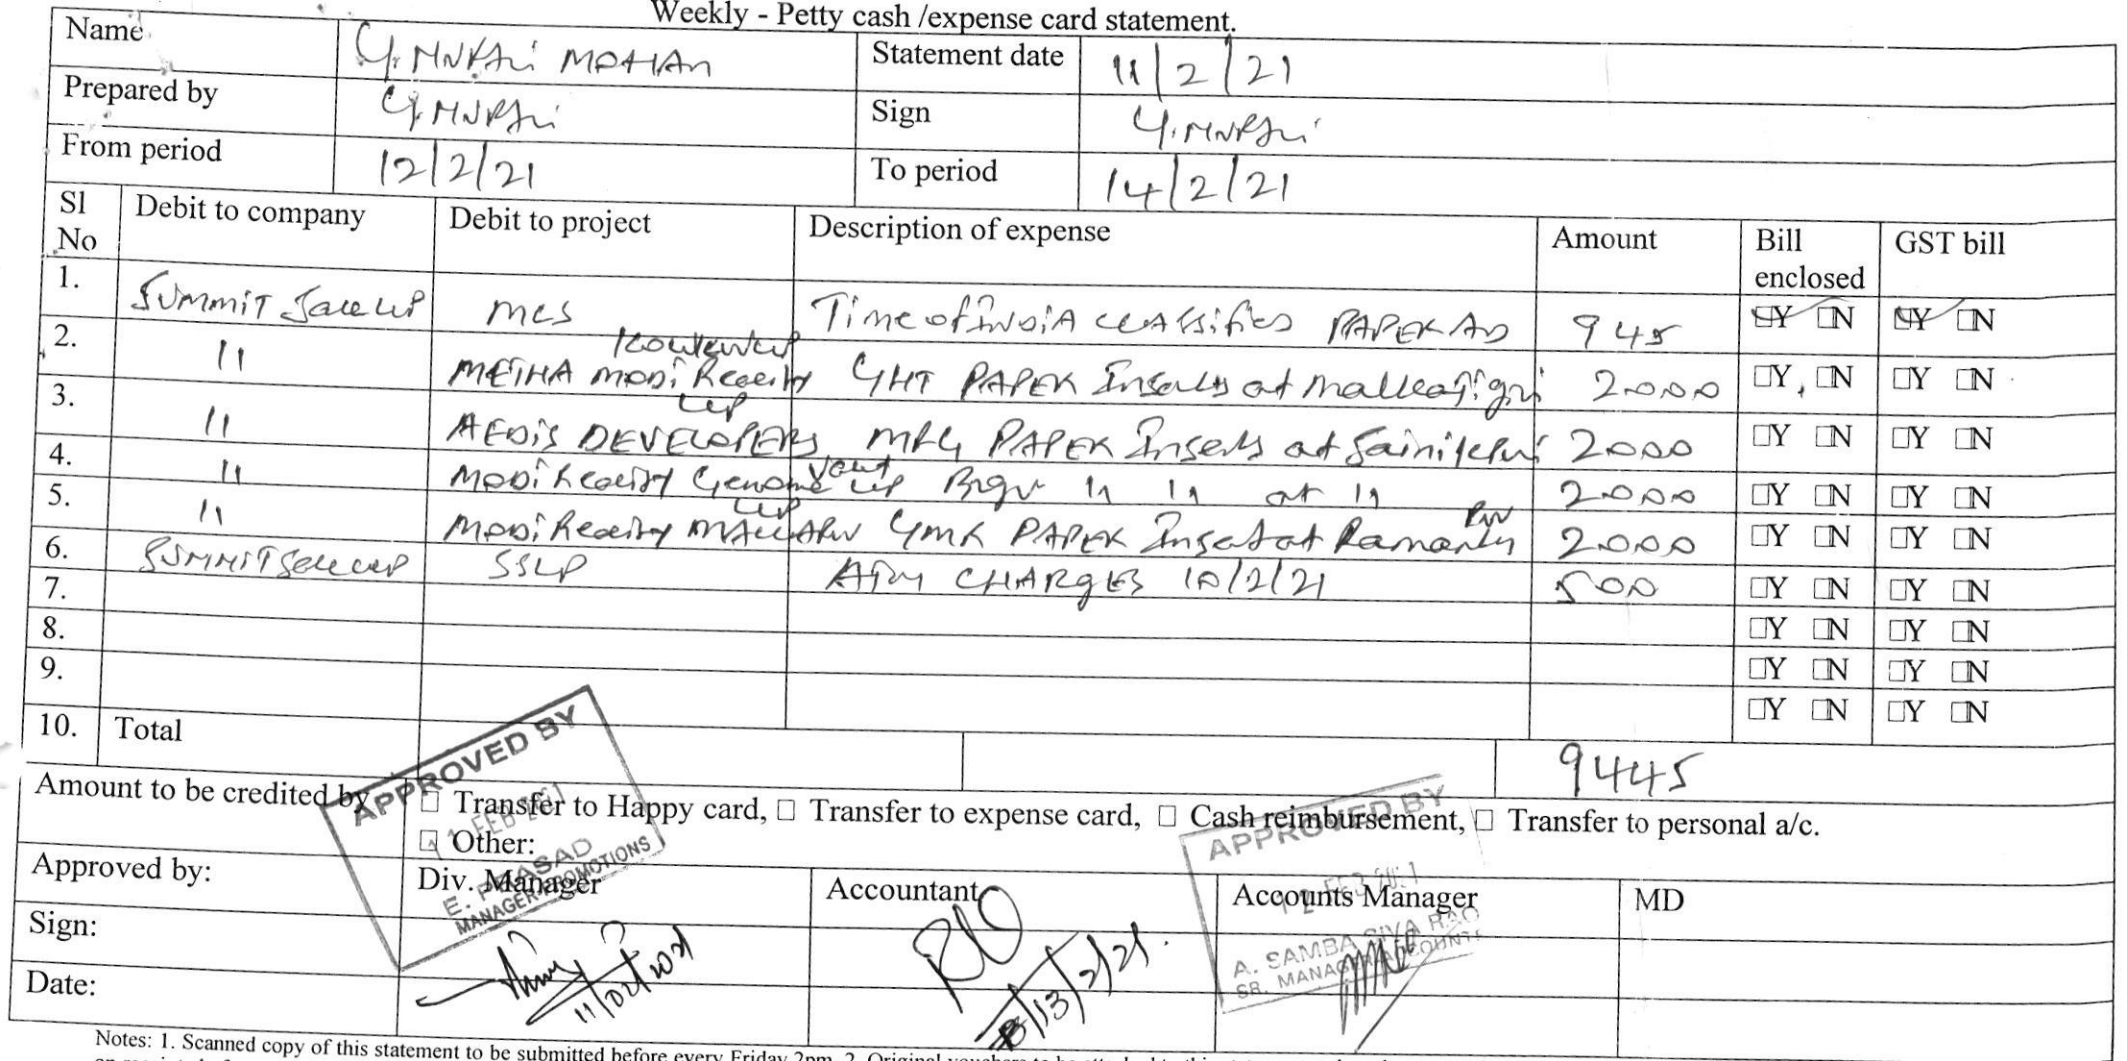 Weekly - Petty cash /expense card statement.
Name G. MURALI MOHAN Statement date 11/2/21
Prepared by G. MURALI Sign G. MURALI
From period 12/2/21 To period 14/2/21
Sl No Debit to company Debit to project Description of expense Amount Bill enclosed GST bill
1. SUMMIT Sales LLP MCS Time of INDIA CLASSifieds PAPER AD 945 Y N Y N
2. 11 METHA MODI Reality LLP GHT PAPER Inserts at Malkajigiri 2000 Y N Y N
3. 11 AEDIS DEVELOPERS LLP MPG PAPER Inserts at Sainikpuri 2000 Y N Y N
4. 11 MODI Reality Genome LLP 11 11 at 11 2000 Y N Y N
5. 11 MODI Reality LLP GMR PAPER Insert at 2000 Y N Y N
6. SUMMIT Sales LLP SSLP ATM CHARGES 10/2/21 500 Y N Y N
7. Y N Y N
8. Y N Y N
9. Y N Y N
10. Total 9445
Amount to be credited by Transfer to Happy card, Transfer to expense card, Cash reimbursement, Transfer to personal a/c.
Other:
APPROVED BY
FEB
E. PRASAD
MANAGER PROMOTIONS
APPROVED BY
12 FEB 2021
A. SAMBA SIVA RAO
SR. MANAGER ACCOUNTS
Approved by: Div. Manager Accountant Accounts Manager MD
Sign:
Date: 11/02/2021 13/2/21
Notes: 1. Scanned copy of this statement to be submitted before every Friday 2pm. 2. Original vouchers to be attached to this